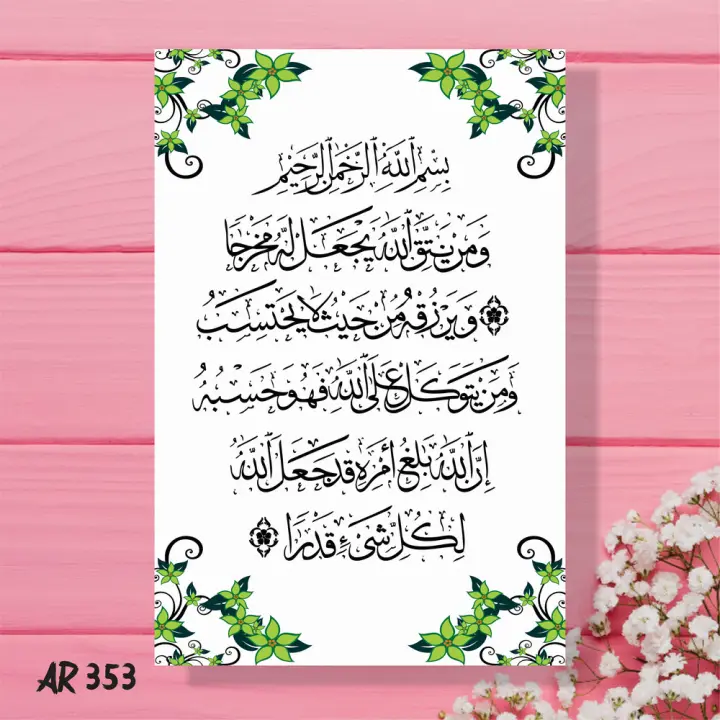 بِسْمِ ٱللَّهِ ٱلرَّحْمَٰنِ ٱلرَّحِيْمِ
وَمَنْ يَتَّقِ ٱللَّهَ يَجْعَلْ لَهُ مَخْرَجًا
۞ وَيَرْزُقْهُ مِنْ حَيْثُ لَا يَحْتَسِبُ
وَمَنْ يَتَوَكَّلْ عَلَى ٱللَّهِ فَهُوَ حَسْبُهُ
إِنَّ ٱللَّهَ بَٰلِغُ أَمْرِهِ قَدْ جَعَلَ ٱللَّهُ
لِكُلِّ شَىْءٍ قَدْرًا ۞
AR 353